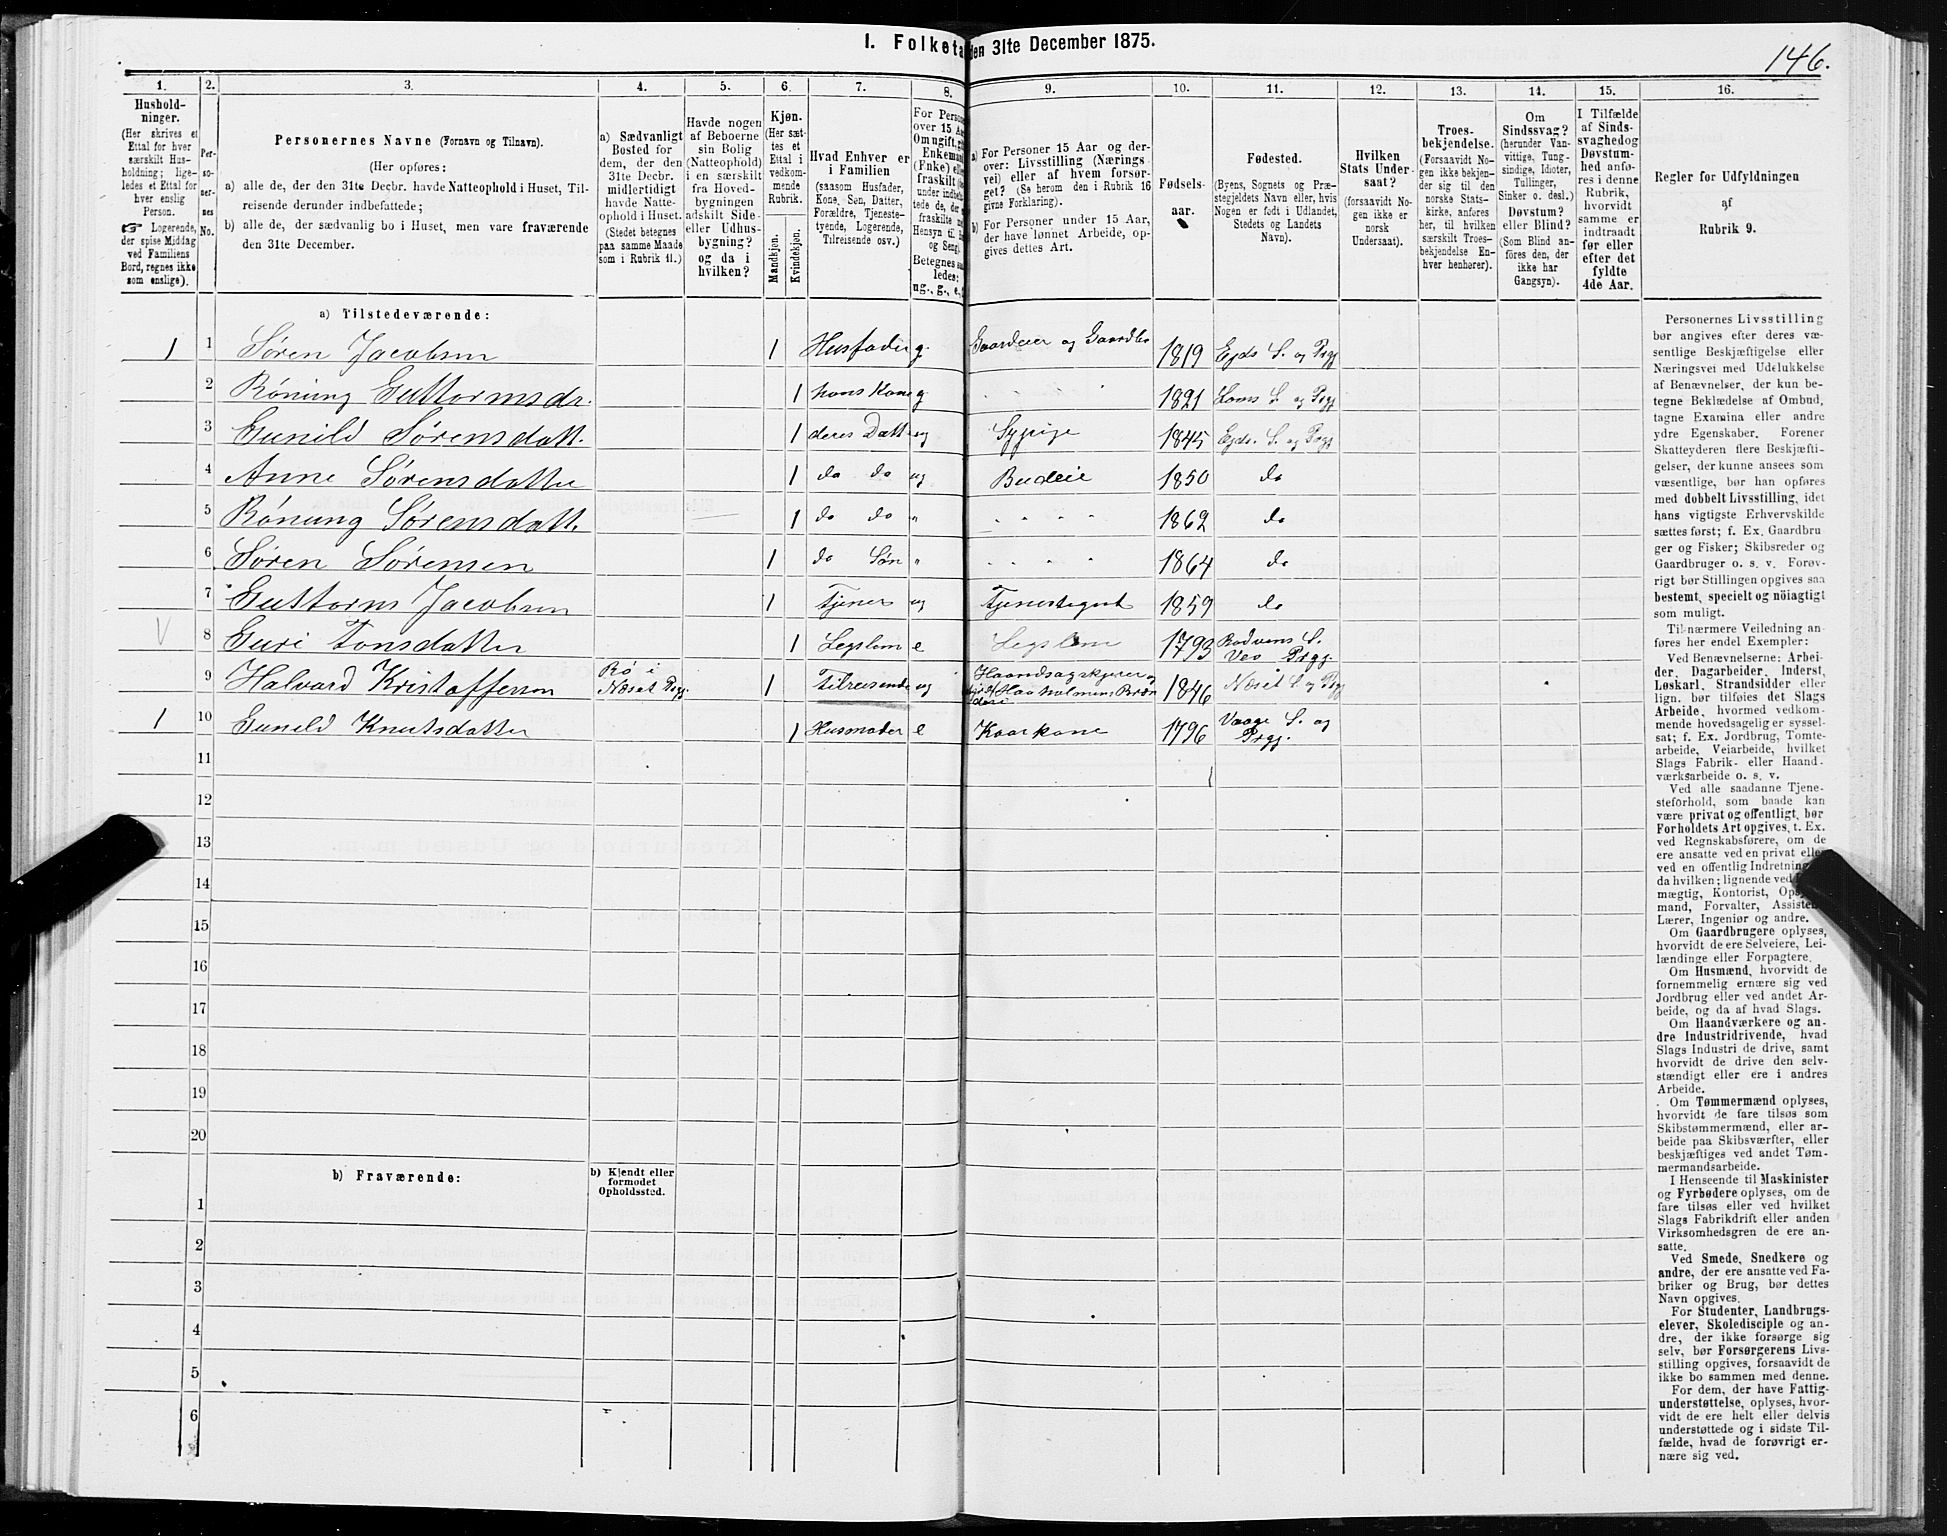 I. Folketa den 31te December 1875.
146.
1.
2.
3.
4.
5.
6.
7.
8.
9.
10.
11.
12.
13.
14.
15.
16.
Hushold-
ninger.
(Her skrives et
Ettal for hver
særskilt Hus-
holdning; lige-
ledes et Ettal for
hver enslig
Person.
☞ Logerende,
der spise Middag
ved Familiens
Bord, regnes ikke
som enslige).
Per-
so-
ner-
nes
No.
Personernes Navne (Fornavn og Tilnavn).
(Her opføres:
a) alle de, der den 31te Decbr. havde Natteophold i Huset, Til-
reisende derunder indbefattede;
b) alle de, der sædvanlig bo i Huset, men vare fraværende
den 31te December.
a) Sædvanligt
Bosted for
dem, der den
31te Decbr.
midlertidigt
havde Natte-
ophold i Huset.
(Stedet betegnes
paa samme Maade
som i Rubrik 11.)
Havde nogen
af Beboerne
sin Bolig
(Natteophold)
i en særskilt
fra Hoved-
bygningen
adskilt Side-
eller Udhus-
bygning?
og da i
hvilken?
Kjøn.
(Her sæt-
tes et
Ettal i
vedkom-
mende
Rubrik.
Mandkjøn.
Kvindekjøn.
Hvad Enhver er
i Familien
(saasom Husfader,
Kone, Søn, Datter,
Forældre, Tjeneste-
tyende, Logerende,
Tilreisende osv.)
For Person
over 15 Aa
Om ugift, g
Enkeman
(Enke) elle
fraskilt
under indbe
tede de,
fraskilte
Hensyn til
og Seng).
Betegnes sa
ledes:
ug., g., e.,
a) For Personer 15 Aar og der-
over: Livsstilling (Nærings
vei) eller af hvem forsør-
get? (Se herom den i Rubrik 16
givne Forklaring).
b) For Personer under 15 Aar,
der have lønnet Arbeide, op-
gives dettes Art.
Fødsels-
aar.
Fødested.
(Byens, Sognets og Præ-
stegjeldets Navn eller, hvis
Nogen er født i Udlandet,
Stedets og Landets
Navn).
Hvilken
Stats Under-
saat?
(forsaavidt No-
gen ikke er
norsk
Undersaat).
Troes-
bekjendelse.
(Forsaavidt No-
gen ikke bekjen-
der sig til den
norske Stats-
kirke, anføres
her, til hvilken
særskilt Troes-
bekjendelse En-
hver henhører).
Om
Sindssvag?
(herunder Van-
vittige, Tung-
sindige, Idioter,
Tullinger,
Sinker o. desl.)
Døvstum?
eller Blind?
(Som Blind an-
føres den, der
ikke har
Gangsyn).
I Tilfælde
af Sinds-
svaghed og
Døvstum-
hed anfø-
res i denne
Rubrik,
hvorvidt
samme er
indtraadt
før eller
efter det
fyldte
4de Aar.
Regler for Udfyldningen
af
Rubrik 9.
a) Tilstedeværende:
1 1 Søren Jacobsen 1 Husfader g. Gaardeier og 1819 Eids S. og Prgj
2 Røning Guttormsdr. 1 hans Kone g 1821 Loms S. og Prgj
3 Gunild Sørensdatt. 1 deres Datt ug Sypige 1845 Eids. S. og Prgj
4 Anne Sørensdatter 1 do do ug Budeie 1850 do
5 Rønung Sørensdatt. 1 do do " " " " 1862 do
6 Søren Sørensen 1 do Søn " " " " 1864 do
7 Guttorm Jacobsen 1 Tjener ug Tjenestegut 1859 do
V 8 Guri Tonsdatter 1 Legslem e Legslem 1793 Rodvens S. Veø Prgj.
9 Halvard Kristofferson Rø i Næset Prgj. 1 Tilreisende ug 1846 Næset S. og Prgj
1 10 Gunild Knutsdatter 1 Husmoder e Kaarkone 1796 Vaage S. og Prgj.
11
12
13
14
15
16
17
18
19
20
b) Fraværende:
b) Kjendt eller
formodet
Opholdssted.
1
2
3
4
5
6
Personernes Livsstilling
bør angives efter deres væ-
sentlige Beskjæftigelse eller
Næringsvei med Udelukkelse
af Benævnelser, der kun be-
tegne Beklædelse af Ombud,
tagne Examina eller andre
ydre Egenskaber. Forener
Skatteyderen flere Beskjæfti-
gelser, der kunne ansees som
væsentlige, bør han opføres
med dobbelt Livsstilling, idet
hans vigtigste Erhvervskilde
sættes først; f. Ex. Gaardbru
ger og Fisker; Skibsreder og
Gaardbruger o. s. v. Forøv-
rigt bør Stillingen opgives saa
bestemt, specielt og nöiagtigt
som muligt.
Til nærmere Veiledning an-
føres her endel Exempler:
Ved Benævnelserne: Arbei-
der, Dagarbeider, Inderst,
Løskarl, Strandsidder eller
lign. bør tilføies det Slags
Arbeide, hvormed vedkom-
mende hovedsagelig er syssel-
sat; f. Ex. Jordbrug, Tomte-
arbeide, Veiarbeide, hvilket
Slags Fabrik- eller Haand-
værksarbeide o. s. v.
Ved alle saadanne Tjene-
steforhold, som baade kan
være privat og offentligt, bør
Forholdets Art opgives, t. Ex.
ved Regnskabsførere, om de
ere ansatte ved en privat elle
ved en offentlig Indretning
da hvilken; lignende ved
mægtig, Kontorist, Ops
mand, Forvalter, Assisten
Lærer, Ingeniør og andre.
Om Gaardbrugere oplyses,
hvorvidt de ere Selveiere, Lei-
lændinge eller Forpagtere.
Om Husmænd, hvorvidt de
fornemmelig ernære sig ved
Jordbrug eller ved andet Ar-
beide, og da af hvad Slags.
Om Haandværkere og an-
dre Industridrivende, hvad
Slags Industri de drive, samt
hvorvidt de drive den selv-
stændigt eller ere i andres
Arbeide.
Om Tømmermænd oplyses,
hvorvidt de fare tilsøs som
Skibstømmermænd, eller ar-
beide paa Skibsværfter, eller
beskjæftiges ved andet Tøm-
mermandsarbeide.
I Henseende til Maskinister
og Fyrbødere oplyses, om de
fare tilsøs eller ved hvilket
Slags Fabrikdrift eller anden
Virksomhedsgren de ere an-
satte.
Ved Smede, Snedkere og
andre, der ere ansatte ved Fa-
briker og Brug, bør dettes
Navn opgives.
For Studenter, Landbrugs-
elever, Skoledisciple og an-
dre, der ikke forsørge sig
selv, bør Forsørgerens Livs-
stilling opgives, forsaavidt de
ikke bo sammen med denne.
For dem, der have Fattig-
understøttelse, oplyses, hvor-
vidt de ere helt eller delvis
understøttede og i sidste Til-
fælde, hvad de forøvrigt er-
nære sig ved.